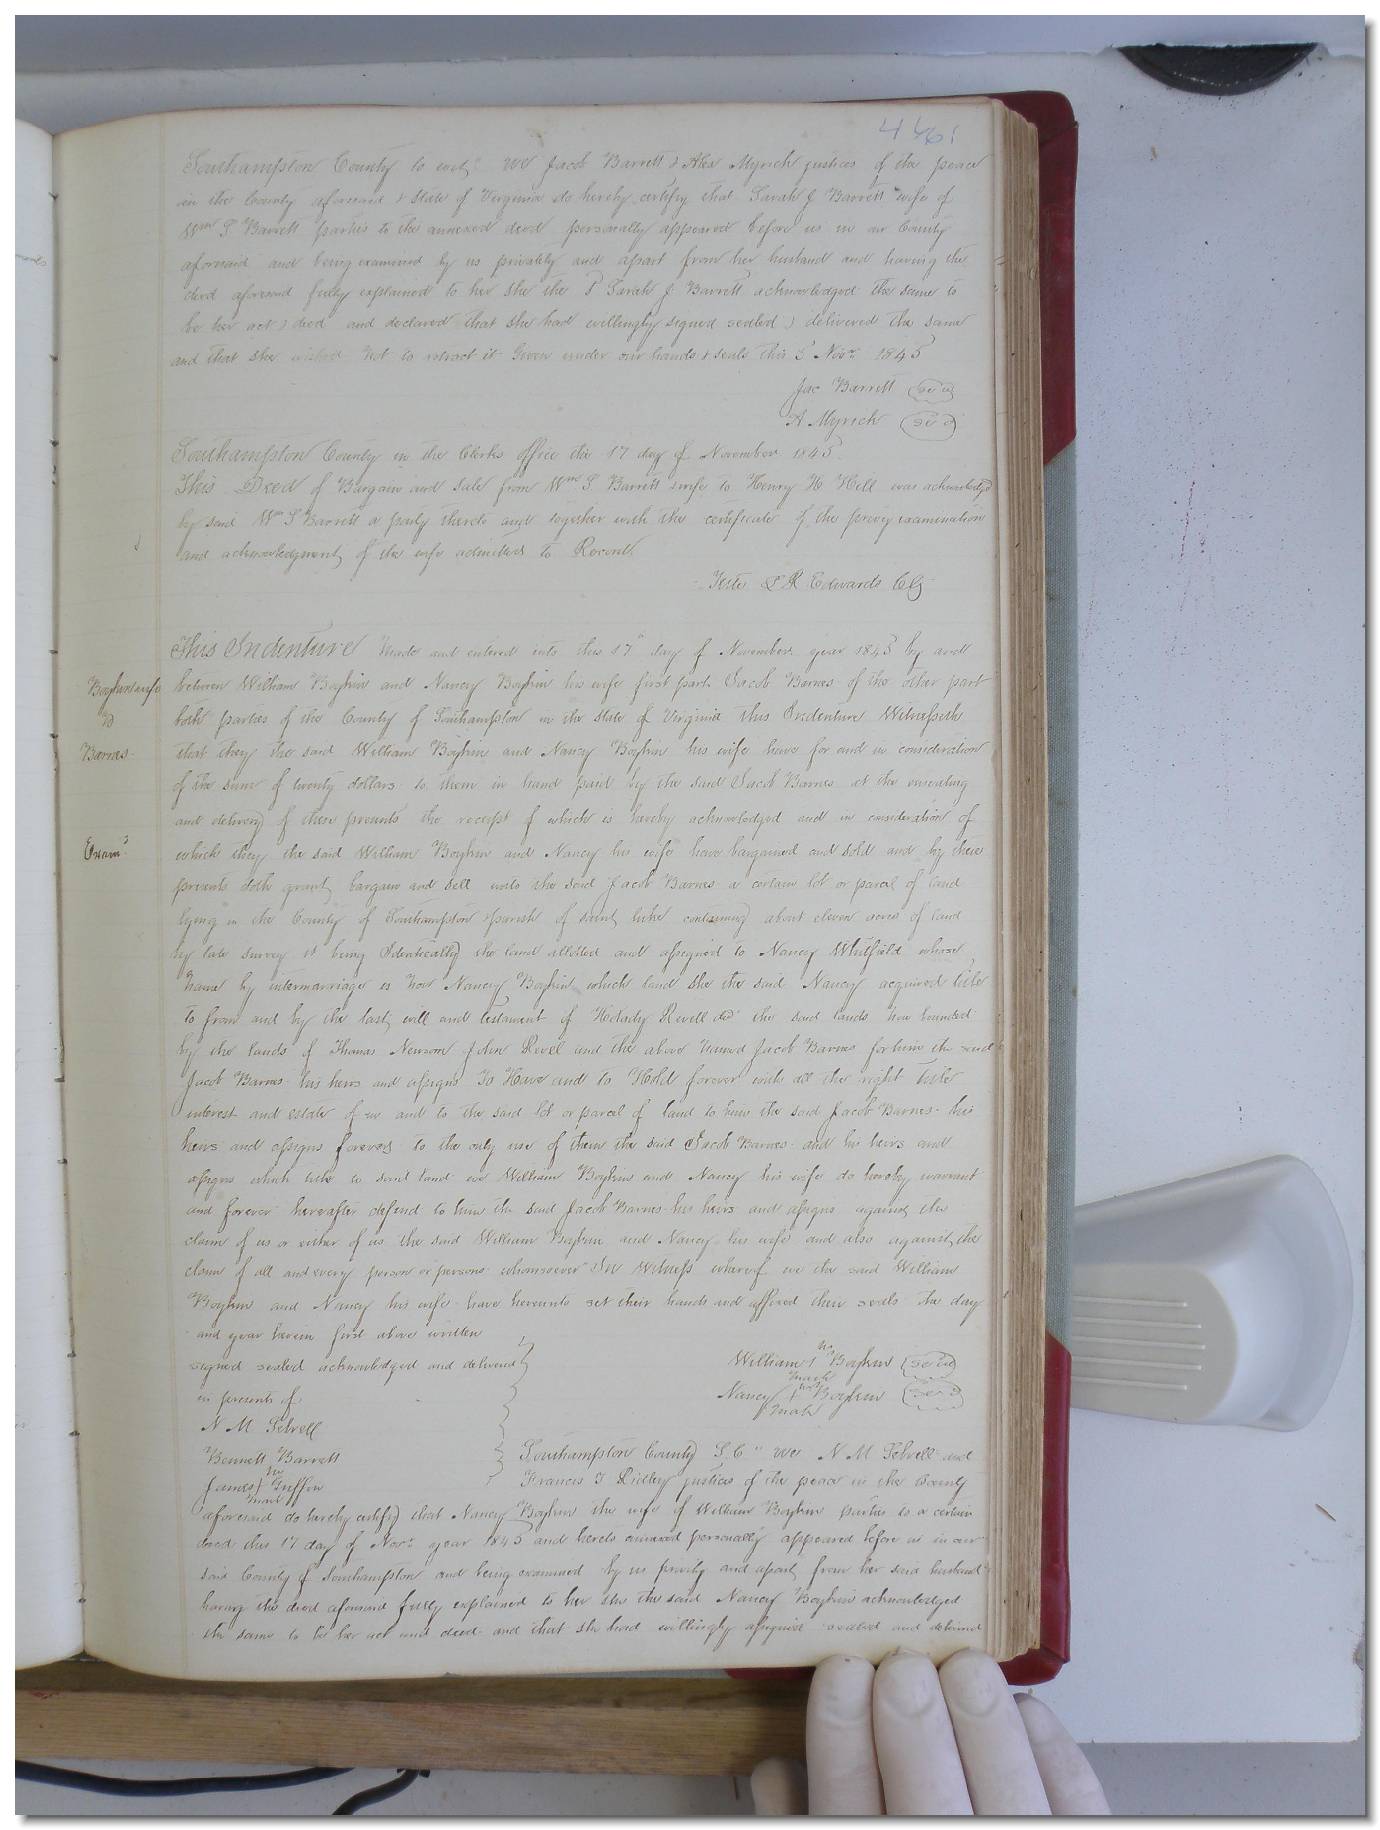 461
Southampton County to wit: We Jacob Barrett & Alex Myrick justices of the peace
in the County aforesaid & State of Virginia do hereby certify that Sarah J Barrett wife of
Wm S Barrett parties to the annexed deed personally appeared before us in our County
aforesaid and being examined by us privately and apart from her husband and having the
deed aforesaid fully explained to her she the Sarah J. Barrett acknowledged the same to
be her act & deed and declared that she had willingly signed sealed & delivered the same
and that she wished not to retract it Given under our hands & seals this 5 Novr 1845
Jac Barrett seal
A Myrick seal
Southampton County in the Clerks office the 17 day of November 1845.
This Deed of Bargain and Sale from Wm S Barrett & wife to Henry H Hill was acknowledged
by said Wm S Barrett a party thereto and together with the certificate of the privy examination
and acknowledgment of the wife admitted to Record.
Teste L R Edwards Clk
This Indenture made and entered into this 17th day of November year 1845 by and
Boykin & wife between William Boykin and Nancy Boykin his wife first part Jacob Barnes of the other part
to both parties of the County of Southampton in the State of Virginia this Indenture Witnesseth
Barnes that they the said William Boykin and Nancy Boykin his wife have for and in consideration
of the sum of twenty dollars to them in hand paid by the said Jacob Barnes at the ensealing
and delivery of these presents the receipt of which is hereby acknowledged and in consideration of
Examd which they the said William Boykin and Nancy his wife have bargained and sold and by these
presents doth grant bargain and sell unto the said Jacob Barnes a certain lot or parcel of land
lying in the County of Southampton & parish of saint luke containing about eleven acres of land
by late survey it being Identically the land allotted and assigned to Nancy Whitfield whose
name by intermarriage is now Nancy Boykin which land she the said Nancy acquired title
to from and by the last will and testament of Holady Revell decd the said lands now bounded
by the lands of Thomas Newsom John Revel and the above named Jacob Barnes for him the said
Jacob Barnes his heirs and assigns To Have and to Hold forever with all the right title
interest and estate of in and to the said lot or parcel of land to him the said Jacob Barnes his
heirs and assigns forever to the only use of them the said Jacob Barnes and his heirs and
assigns which title to said land we William Boykin and Nancy his wife do hereby warrant
and forever hereafter defend to him the said Jacob Barnes his heirs and assigns against the
claim of us or either of us the said William Boykin and Nancy his wife and also against the
claim of all and every person or persons whomsoever In Witness whereof we the said William
Boykin and Nancy his wife have hereunto set their hands and affixed their seals the day
and year herein first above written
signed sealed acknowledged and delivered
in presents of
N M Sebrell
Bennett Barrett
James his mark Griffin
William his mark Boykin seal
Nancy her mark Boykin seal
Southampton County S.C. We N M Sebrell and
Francis T Ridley justices of the peace in the County
aforesaid do hereby certify that Nancy Boykin the wife of William Boykin parties to a certain
deed this 17 day of Novr year 1845 and hereto annexed personally appeared before us in our
said County of Southampton and being examined by us privily and apart from her said husband
having the deed aforesaid fully explained to her she the said Nancy Boykin acknowledged
the same to be her act and deed and that she had willingly assigned sealed and delivered